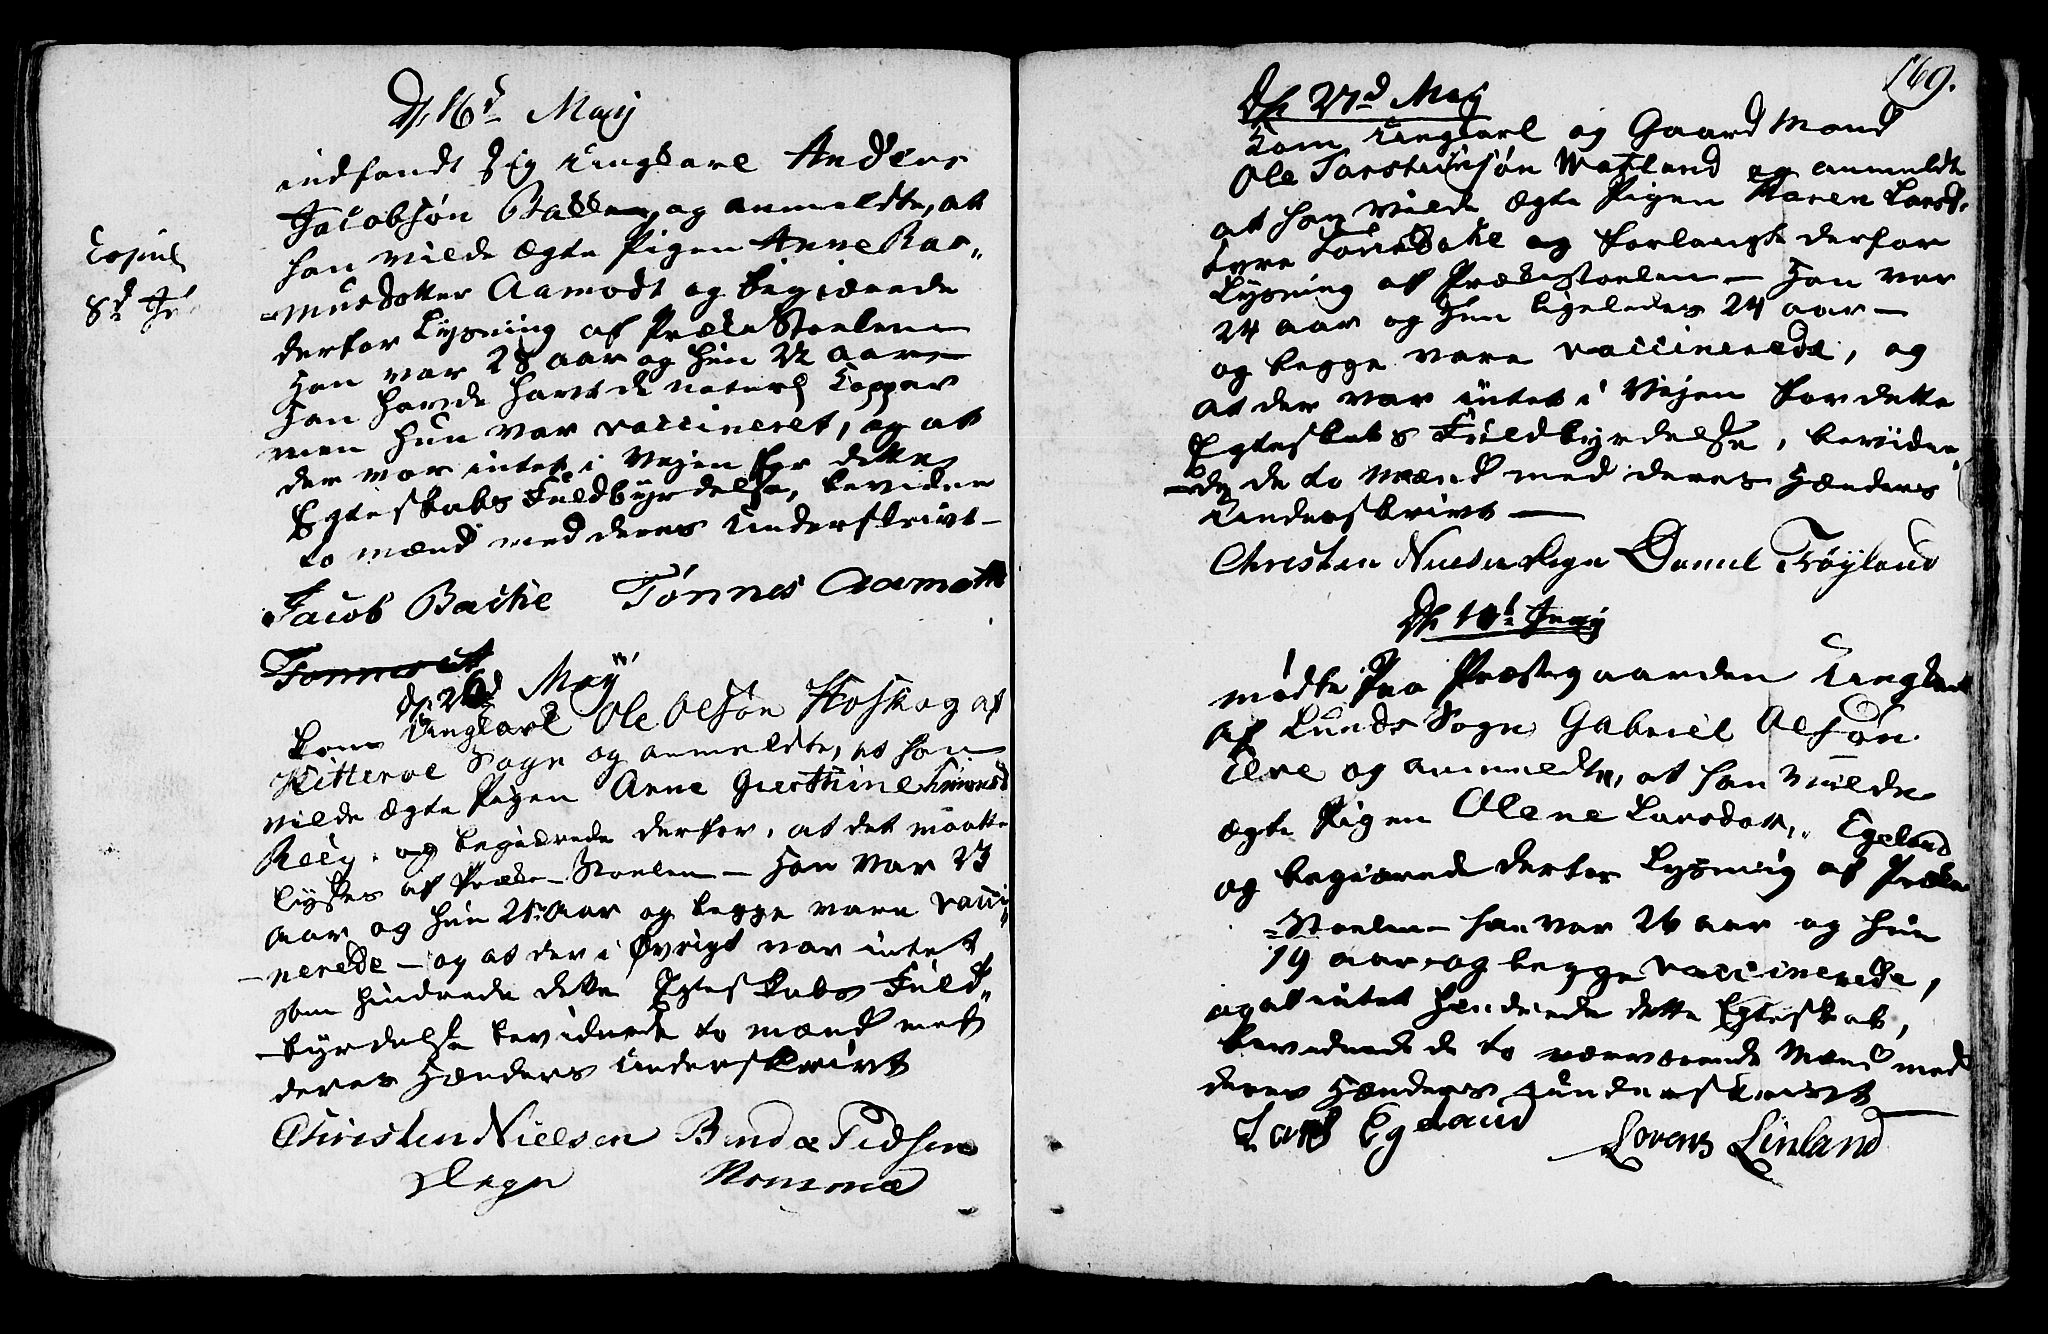 D. 16d May
indfandt sig Ungkarl Anders
Jacobsøn Bakke, og anmeldte, at
han vilde ægte Pigen Anne Ras„
musdotter Aamodt og begierede
derfor Lysning af Præke Stoelen
Han var 28 aar og hun 22 aar
Han havde havt de naturl Kopper
men hun var vaccineret, og at
der var intet i Vejen for dette
Egteskabs Fuldbyrdelse, bevidner
to mænd med deres Underskrivt –
Jacob Bache Tönnes Aamoth
Tonnes A
Copul
8d
D. 26d May
kom Ungkarl Ole Olsøn Hoskog af
Hitteroe Sogn og anmeldte, at han
vilde ægte Pigen Anne Giærthine Simonsd
Reeg. og begierede derfor, at det maatte
lyses af Præke-Stoelen – Han var 23
aar og hun 21 Aar og begge vare vacci„
nerede – og at der i Øvrigt var intet
som hindrede dette Egteskabs Fuld„
byrdelse bevidnede to mænd med
deres Hænders Underskrivt
Christen Nielsen Bendix Pedsen
Degn
169.
D. 27d May
kom Ungkarl og Gaard Mand
Ole Torstensøn Watland og anmeldte
at han vilde ægte Pigen Maren Larsd.
og forlangte derfor
Lysning af Prækestoelen – Han var
24 aar og hun ligeledes 24 aar –
og begge vare vaccinerede, og
at der var intet i Vejen for dette
Egteskabs Fuldbyrdelse, bevidne„
de to mænd med deres Hænders
Underskrivt –
Christen Nielsen Degn Daniel Trøyland
mødte paa Præstegaarden Ungkarl
af Lunds Sogn Gabriel Olsøn
Elve og anmeldte, at han vilde
ægte Pigen Olene Larsdatt„ Egeland
og begierede derfor Lysning af Præke
Stoelen – han var 26 aar og hun
19 aar og begge vaccinerede,
og at intet hendrede dette Egteskab,
bevidnede de to nærværende Mænd med
deres Hænders Underskrivt
Lars Egeland Lorens Linland